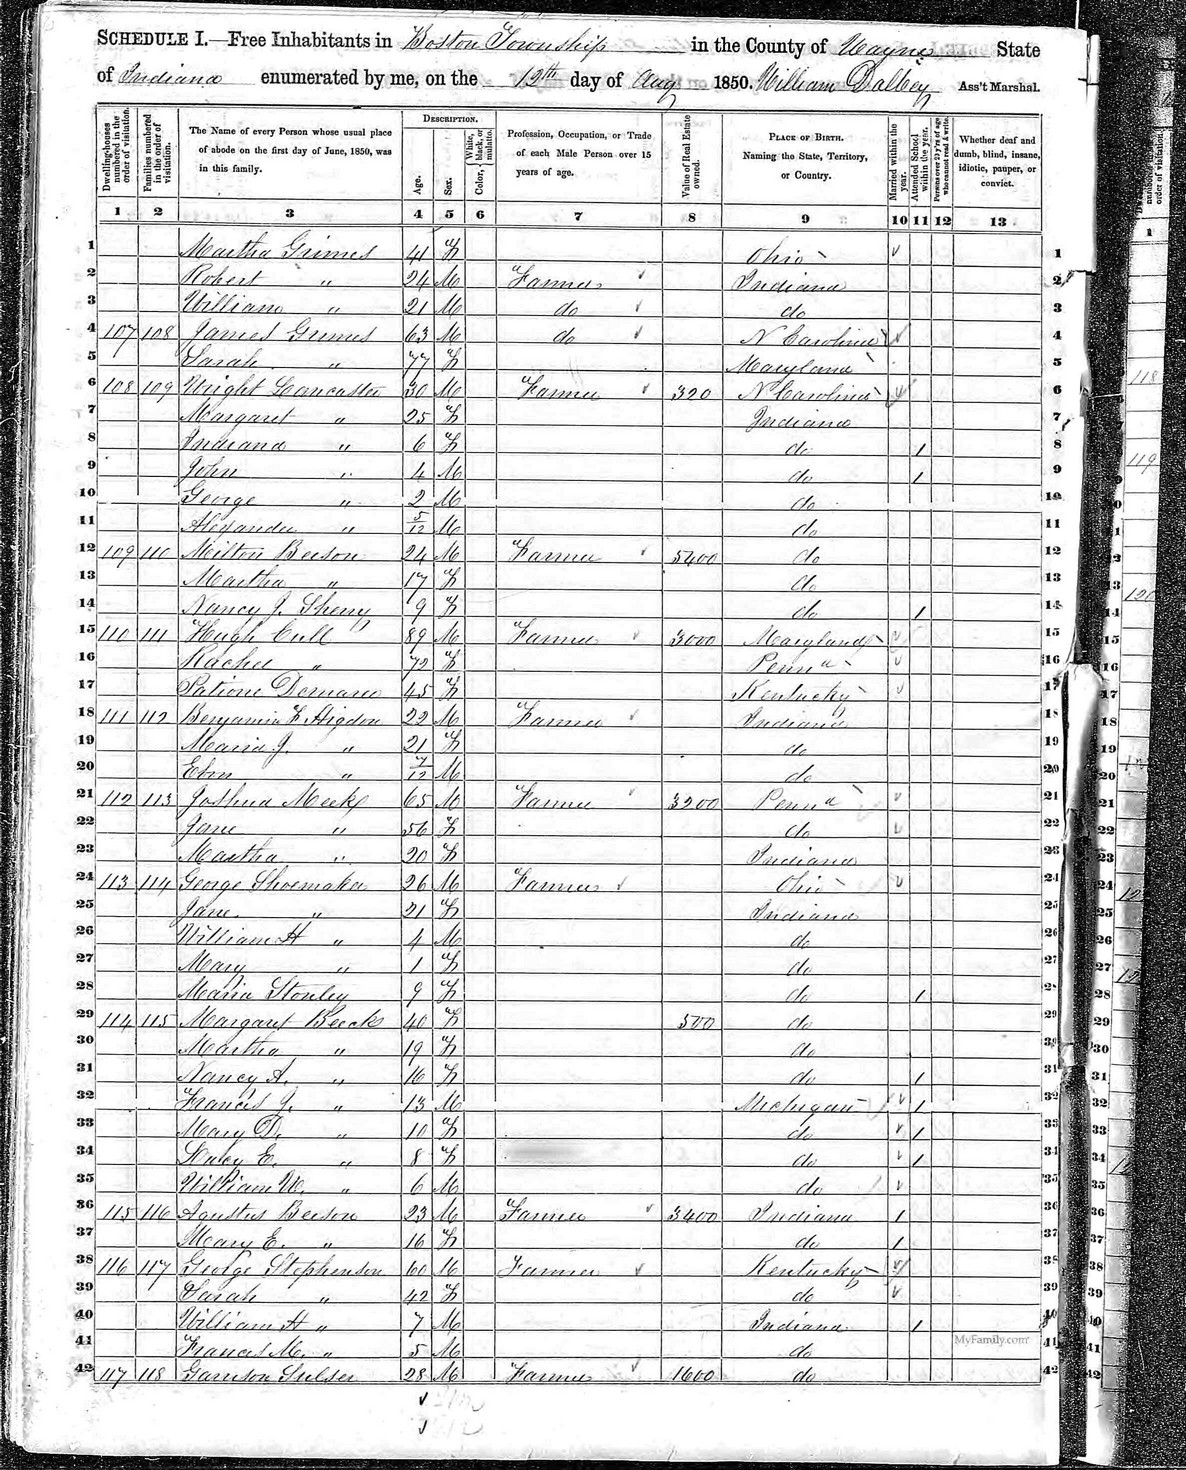 SCHEDULE I.—Free Inhabitants in Boston Township in the County of Wayne State
of Indiana enumerated by me, on the 12th day of Aug 1850. William Dalbey Ass't Marshal.
Dwelling-houses numbered in the order of visitation.
Families numbered in the order of visitation.
The Name of every Person whose usual place of abode on the first day of June, 1850, was in this family.
DESCRIPTION.
Age.
Sex.
Color, White, black, or mulatto.
Profession, Occupation, or Trade of each Male Person over 15 years of age.
Value of Real Estate owned.
PLACE OF BIRTH. Naming the State, Territory, or Country.
Married within the year.
Attended School within the year.
Persons over 20 y'rs of age who cannot read & write.
Whether deaf and dumb, blind, insane, idiotic, pauper, or convict.
1 2 3 4 5 6 7 8 9 10 11 12 13
1 Martha Grimes 41 F Ohio 1
2 Robert " 24 M Farmer Indiana 2
3 William " 21 M do do 3
4 107 108 James Grimes 63 M do N Carolina 4
5 Sarah " 77 F Maryland 5
6 108 109 Wright Lancaster 30 M Farmer 320 N Carolina 6
7 Margaret " 25 F Indiana 7
8 Indiana " 6 F do 1 8
9 John " 4 M do 1 9
10 George " 2 M do 10
11 Alexander " 5/12 M do 11
12 109 110 Milton Beeson 24 M Farmer 5400 do 12
13 Martha " 17 F do 13
14 Nancy J. Sherry 9 F do 1 14
15 110 111 Hugh Cull 89 M Farmer 3000 Maryland 15
16 Rachel " 72 F Penna 16
17 45 F Kentucky 17
18 111 112 Benjamin F. Higdon 22 M Farmer Indiana 18
19 Maria J. " 21 F do 19
20 Eben " 7/12 M do 20
21 112 113 Joshua Meek 65 M Farmer 3200 Penna 21
22 Jane " 56 F do 22
23 Martha " 20 F Indiana 23
24 113 114 George Shoemaker 26 M Farmer Ohio 24
25 Jane " 21 F Indiana 25
26 William H " 4 M do 26
27 Mary " 1 F do 27
28 Maria Stonley 9 F do 1 28
29 114 115 Margaret Beeck 40 F 500 do 29
30 Martha " 19 F do 30
31 Nancy A. " 16 F do 1 31
32 Francis J. " 13 M Michigan 1 32
33 Mary D. " 10 F do 1 33
34 E. " 8 F do 1 34
35 William W. " 6 M do 35
36 115 116 Agustus Beeson 23 M Farmer 3400 Indiana 1 36
37 Mary E. " 16 F do 1 37
38 116 117 George Stephenson 60 M Farmer Kentucky 38
39 Sarah " 42 F do 39
40 William H " 7 M Indiana 1 40
41 Francis M. " 5 M do 41
42 117 118 Garrison Sulser 28 M Farmer 1600 do 42
MyFamily.com